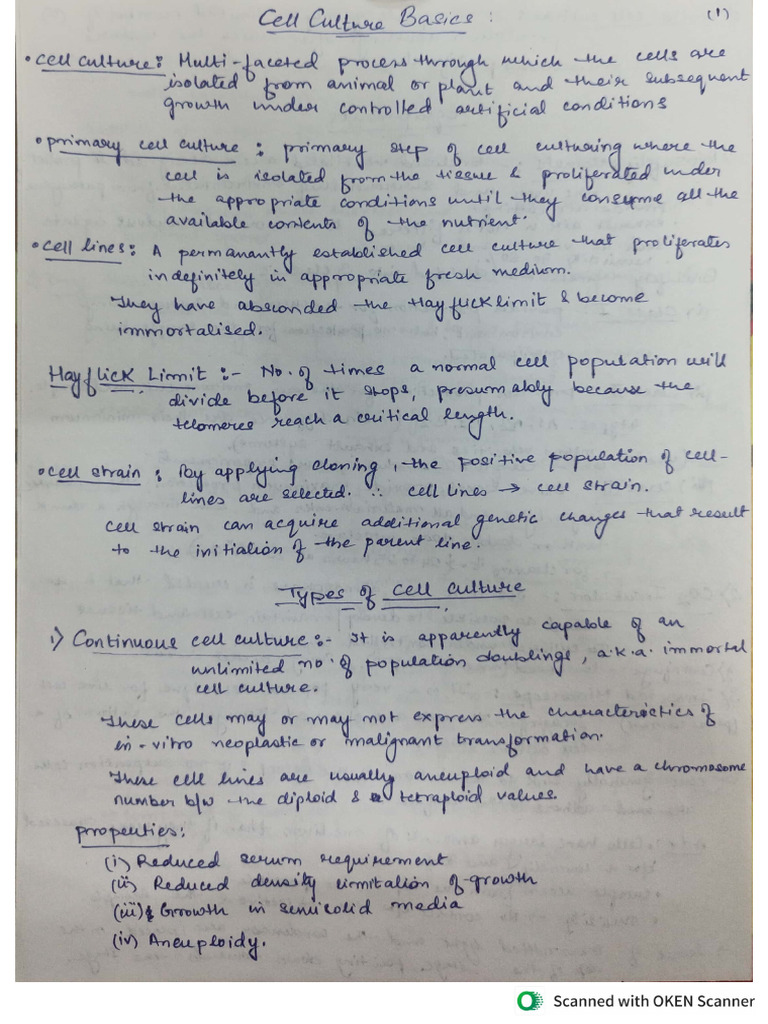 Cell Culture Basics :
(1)
• Cell culture : Multi-faceted process through which the cells are
isolated from animal or plant and their subsequent
growth under controlled artificial conditions
• primary cell culture : primary step of cell culturing where the
cell is isolated from the tissue & proliferated under
the appropriate conditions until they consume all the
available contents of the nutrient.
• Cell lines : A permanantly established cell culture that proliferates
indefinitely in appropriate fresh medium.
They have absconded the Hayflick limit & become
immortalised.
Hayflick Limit :- No. of times a normal cell population will
divide before it stops, presumably because the
telomeres reach a critical length.
• Cell strain : By applying cloning, the positive population of cell-
lines are selected. ∴ cell lines → cell strain.
Cell strain can acquire additional genetic changes that result
to the initiation of the parent line.
Types of cell culture
i) Continuous cell culture :- It is apparently capable of an
unlimited no. of population doublings, a.k.a. immortal
cell culture.
These cells may or may not express the characteristics of
in-vitro neoplastic or malignant transformation.
These cell lines are usually aneuploid and have a chromosome
number b/w the diploid & tetraploid values.
properties :
(i) Reduced serum requirement
(ii) Reduced density limitation of growth
(iii) Growth in semisolid media
(iv) Aneuploidy.
Scanned with OKEN Scanner